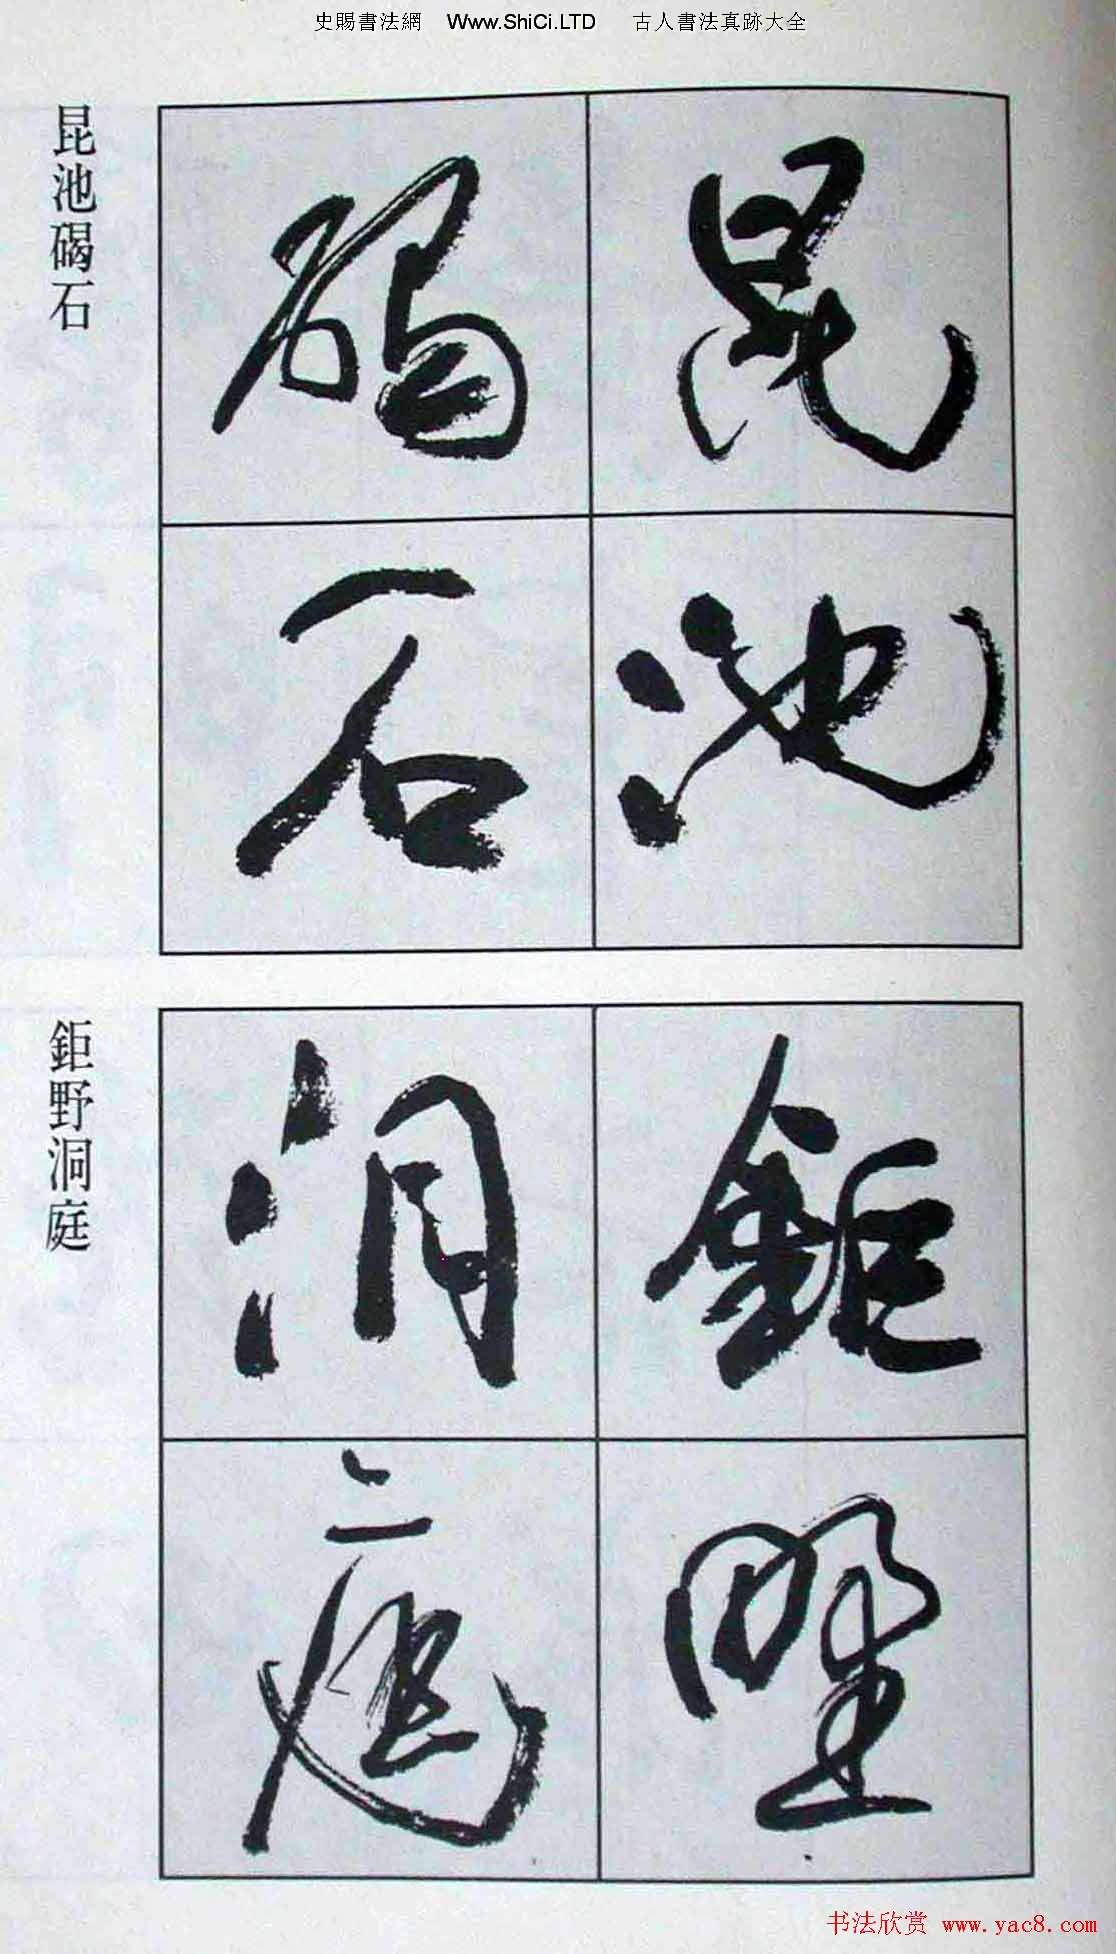 史賜書法網 Www.ShiCi.LTD 古人書法真跡大全
昆池碣石
昆池
碣石
鉅野洞庭
鉅野
洞庭
书法欣赏 www.yac8.com